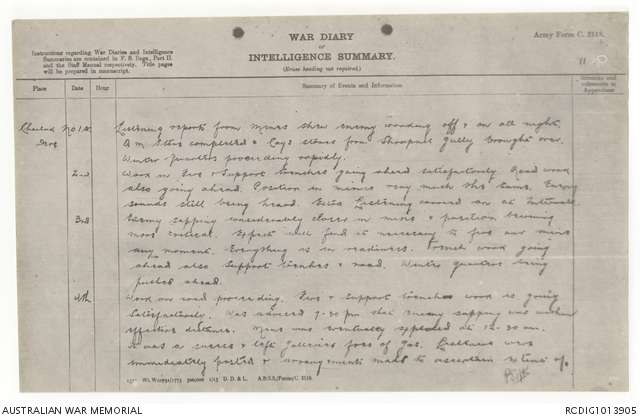 WAR DIARY
or
INTELLIGENCE SUMMARY.
(Erase heading not required.)
Army Form C. 2118.
Instructions regarding War Diaries and Intelligence
Summaries are contained in F. S. Regs., Part II.
and the Staff Manual respectively. Title pages
will be prepared in manuscript.
11
Place
Date
Hour
Summary of Events and Information
Remarks and
references to
Appendices
Listening reports from Mines shew enemy working off & on all night.
completed & stores from Gully brought over.
Winter quarters proceeding rapidly.
2nd
Work in Fire & Support trenches going ahead satisfactorily. Road work
also going ahead. Position in mines very much the same. Enemy
sounds still being heard. Listening carried on at Intervals
3rd
Enemy sapping considerably closer in mines & position becoming
most critical. Expect will find it necessary to fire our mines
any moment. Everything is in readiness. Trench work going
ahead also Support trenches & road. Winter quarters being
pushed ahead.
4th
Work on road proceeding. Fire & Support trenches work is going
satisfactorily. Was advised 9.30 pm that enemy sapping was within
effective distance. Mine was eventually exploded at
It was a success & left galleries free of Gas. were
immediately posted & arrangements made to ascertain extent of
D. D. & L. A.D.S.S./Forms/C. 2118.
AUSTRALIAN WAR MEMORIAL
RCDIG1013905